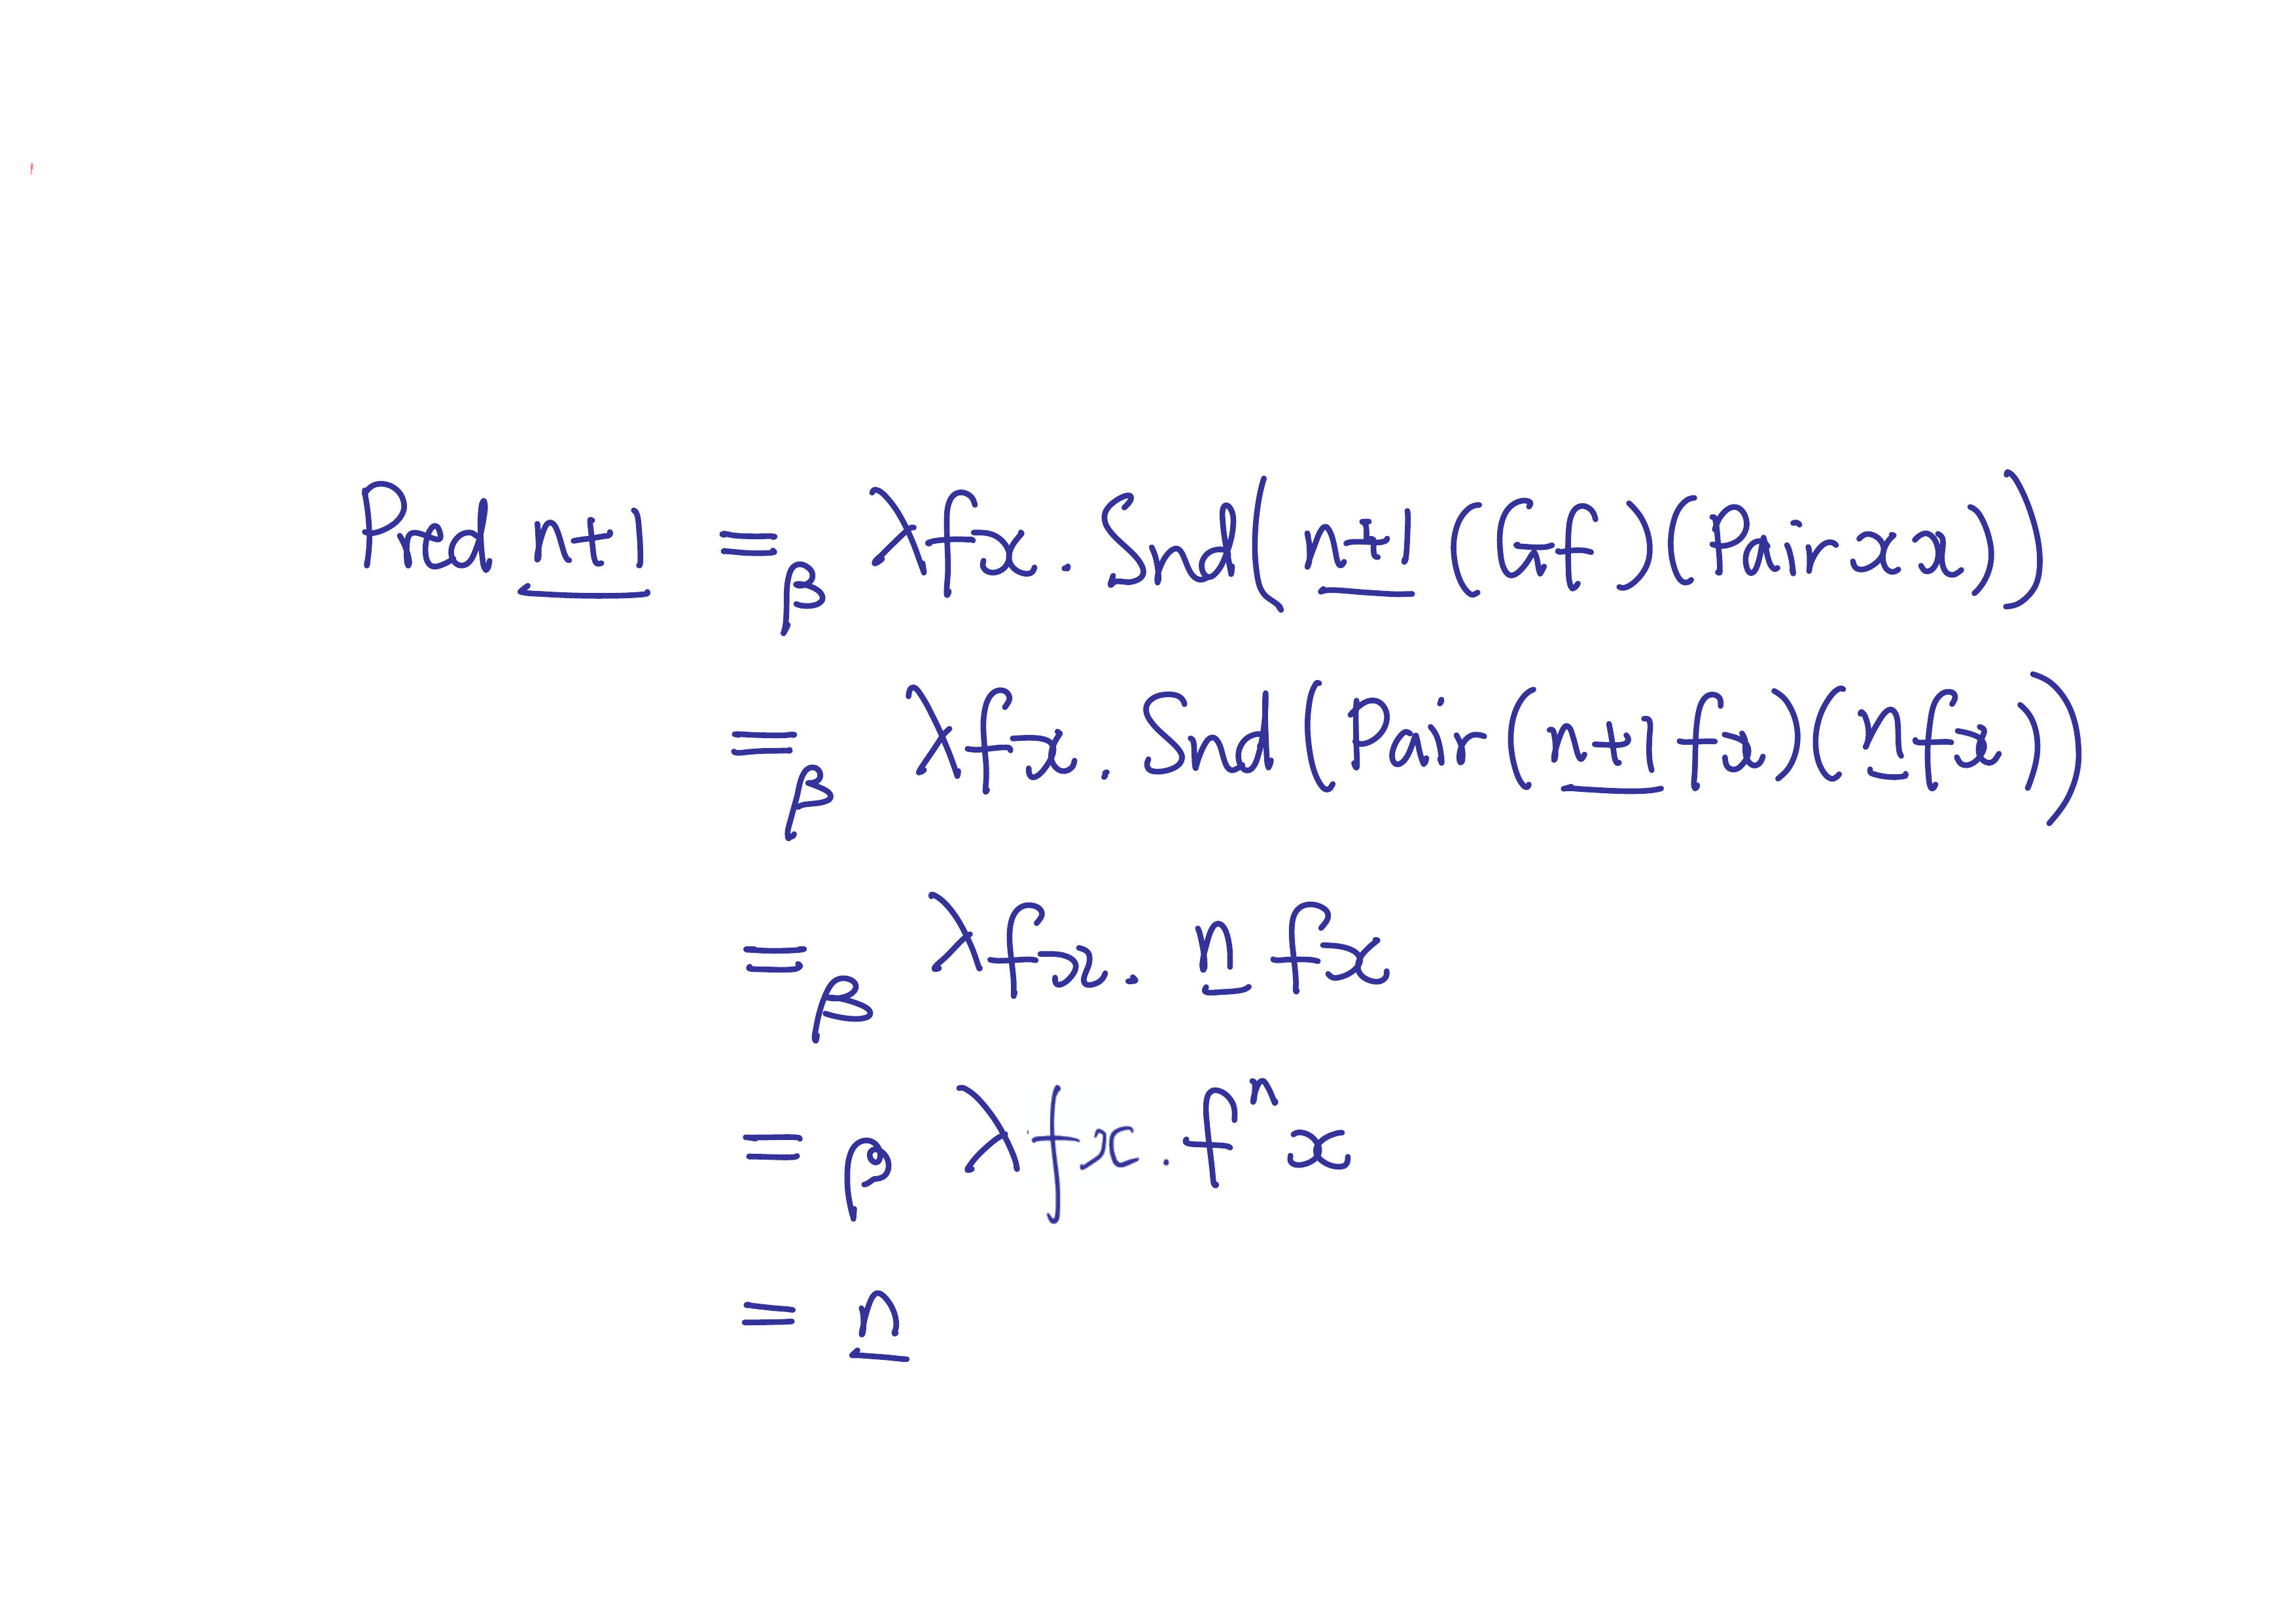 Pred n+1 =β λfx. Snd(n+1 (G f)(Pair x x))
=β λfx. Snd(Pair(n+1 f x)(n f x))
=β λfx. n f x
=β λfx. fⁿ x
= n